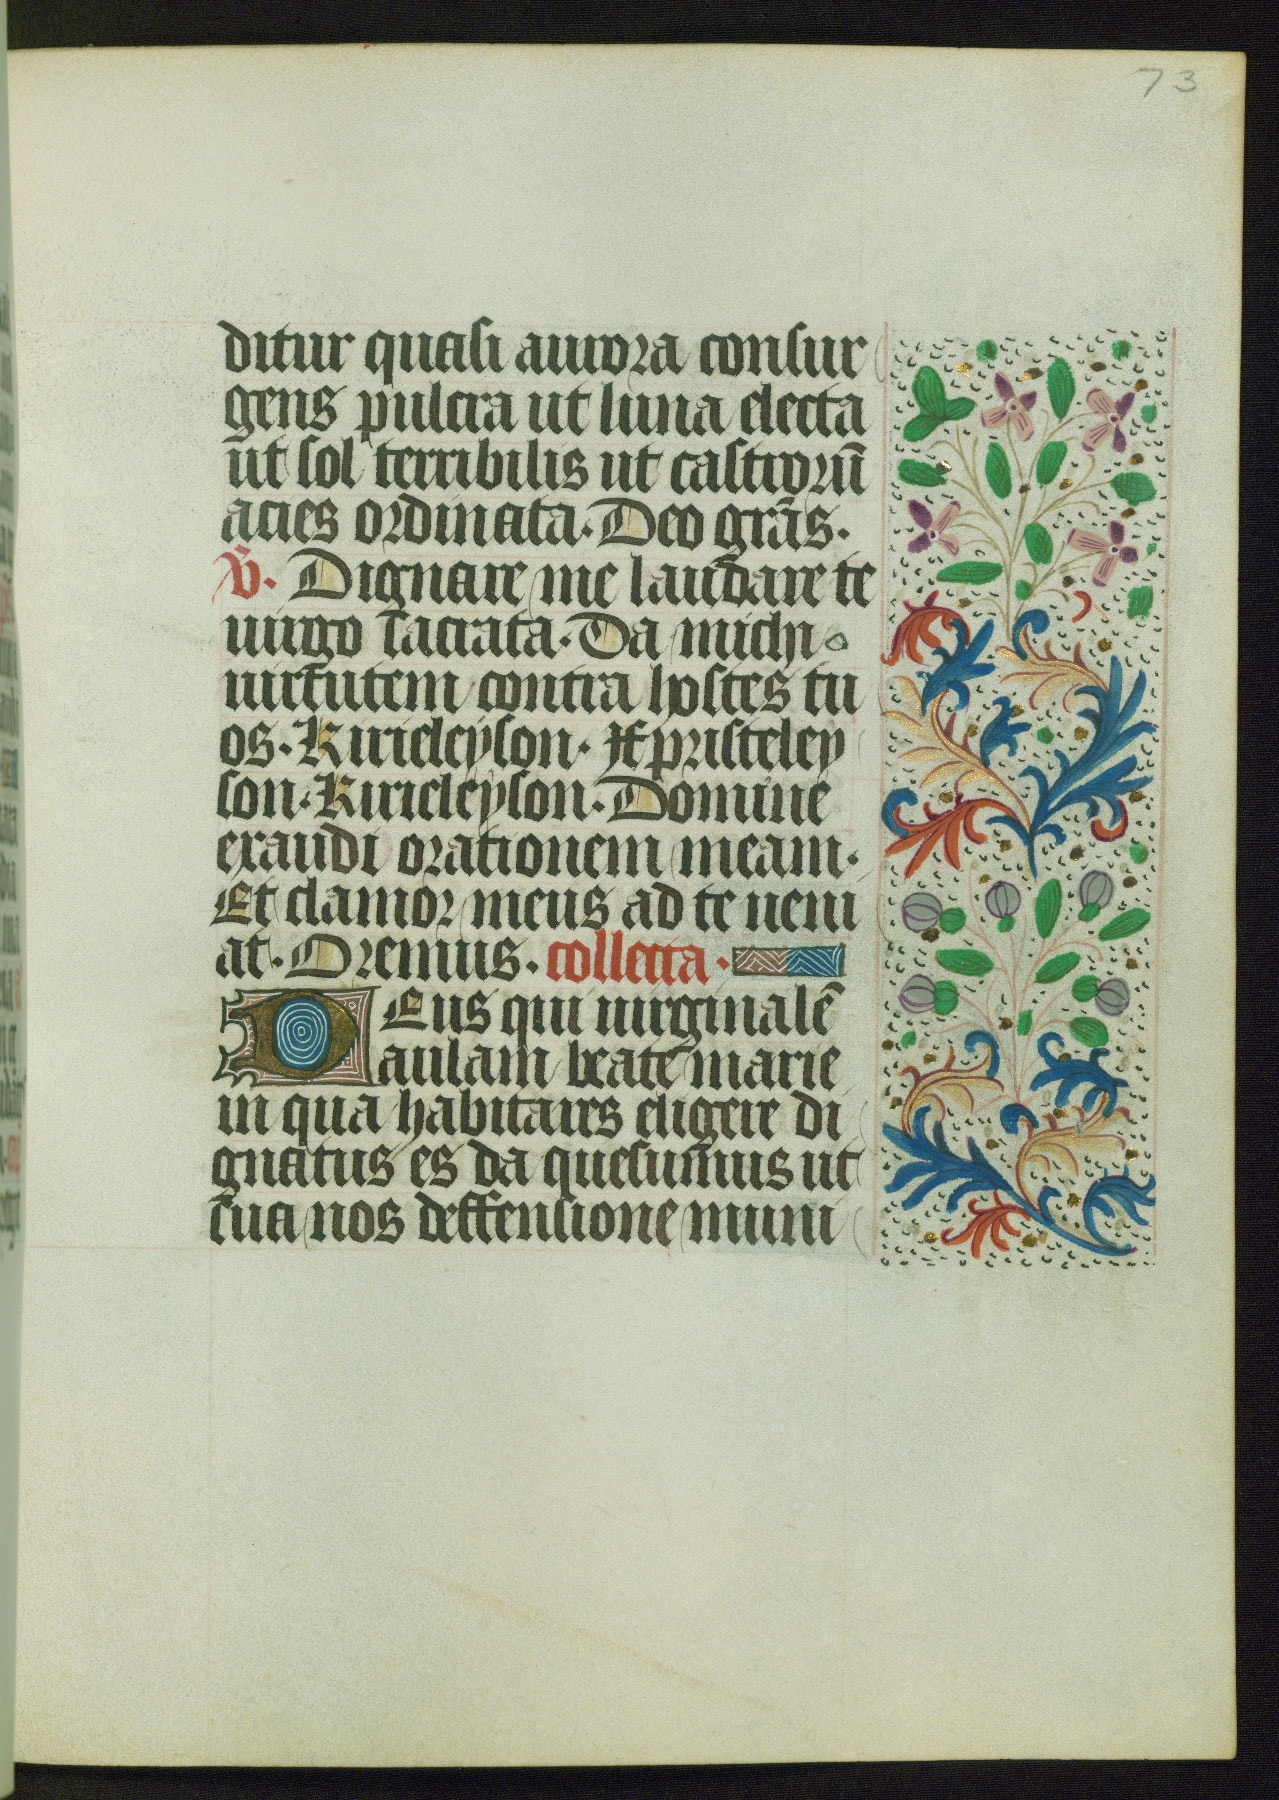 73
ditur quasi aurora consur
gens pulcra ut luna electa
ut sol terribilis ut castrorū
acies ordinata. Deo grās.
V̄. Dignare me laudare te
uirgo sacrata. Da michi
uirtutem contra hostes tu
os. Kirieleyson. Xp̄risteley
son. Kirieleyson. Domine
exaudi orationem meam.
Et clamor meus ad te ueni
at. Oremus. collecta.
Deus qui uirginalē
aulam beate marie
in qua habitares eligere di
gnatus es da quesumus ut
sua nos deffensione muni